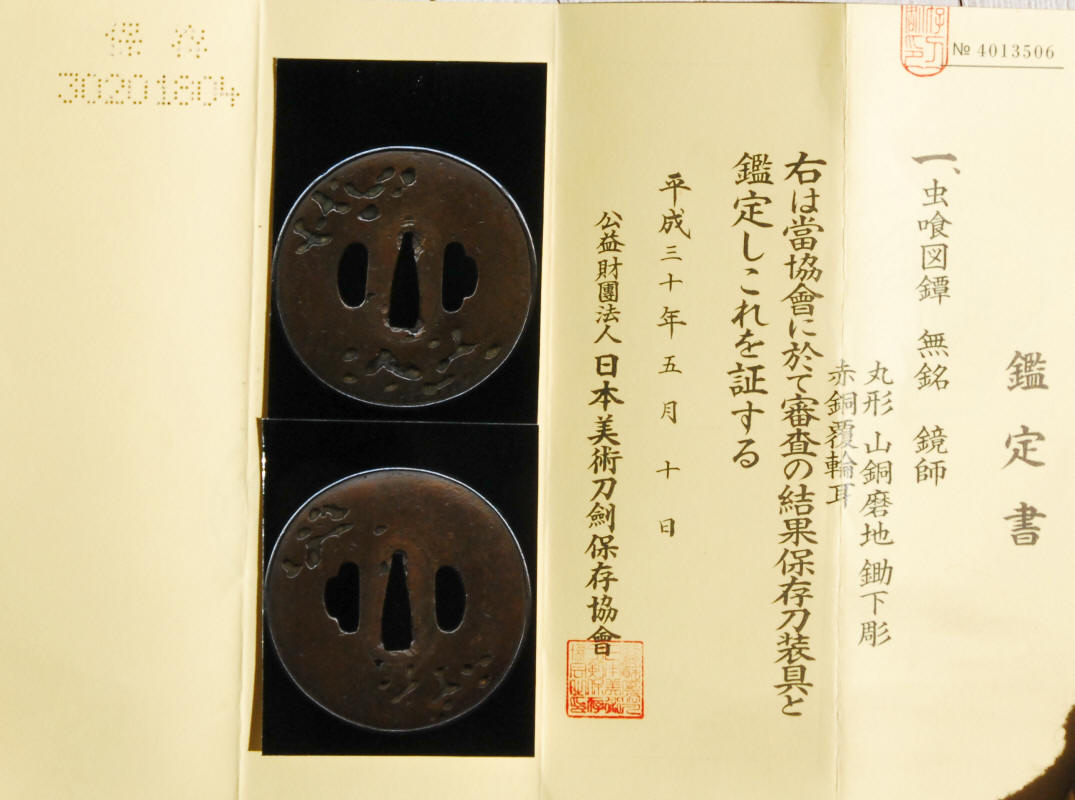 № 4013506
鑑定書
一、虫喰図鐔 無銘 鏡師
丸形 山銅磨地 鋤下彫
赤銅覆輪耳
右は當協會に於て審査の結果保存刀装具と
鑑定しこれを証する
平成三十年五月十日
公益財團法人 日本美術刀劍保存協會
保存
30201804